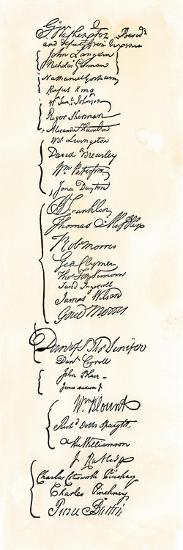 Go Washington Presidt
and deputy from Virginia
John Langdon
Nicholas Gilman
Nathaniel Gorham
Rufus King
Wm Saml Johnson
Roger Sherman
Alexander Hamilton
Wil Livingston
David Brearley
Wm Paterson
Jona Dayton
B Franklin
Thomas Mifflin
Robt Morris
Geo Clymer
Thos FitzSimons
Jared Ingersoll
James Wilson
Gouv Morris
Dan of St Thos Jenifer
Danl Carroll
John Blair
Wm Blount
Richd Dobbs Spaight
Hu Williamson
J Rutledge
Charles Cotesworth Pinckney
Charles Pinckney
Pierce Butler